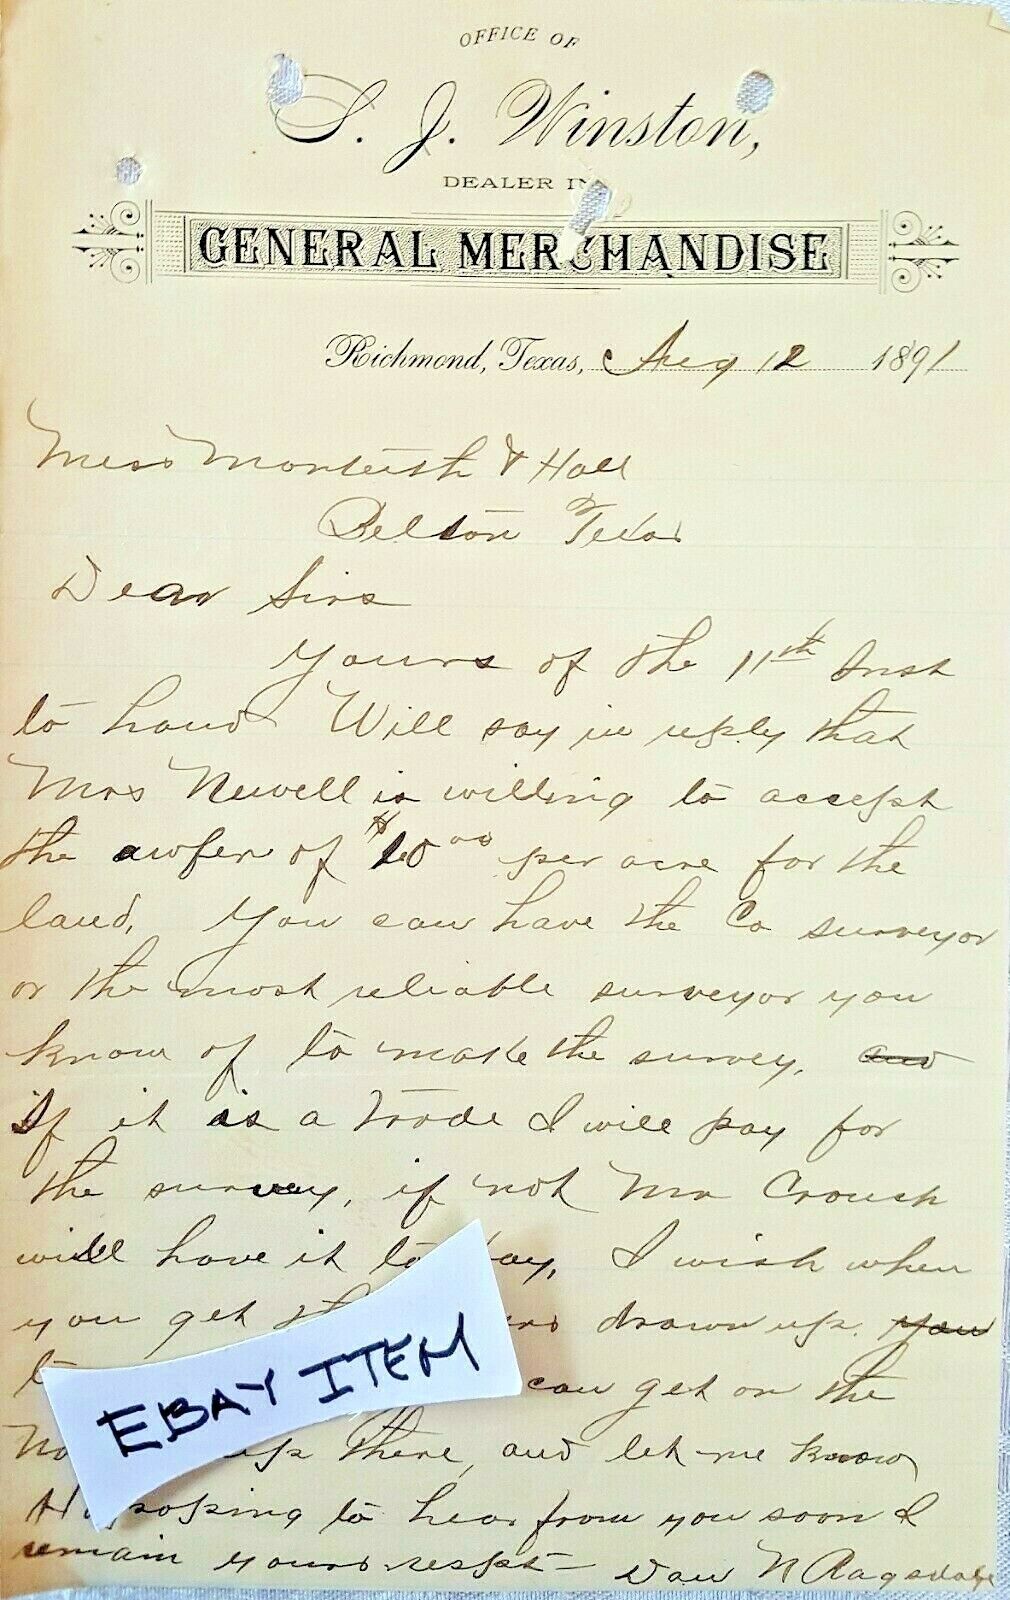 OFFICE OF
S. J. Winston,
DEALER IN
GENERAL MERCHANDISE
Richmond, Texas, Aug 12 1891
Mess Monteith & Hall
Belton Texas
Dear Sirs
Yours of the 11th Inst
to hand Will say in reply that
Mrs Newell is willing to accept
the awfer of $10 00 per acre for the
land, You can have the Co surveyor
or the most reliable surveyor you
know of to make the survey, and
If it is a trade I will pay for
the survey, if not Mr Crouch
will have it to pay, I wish when
you get drawn up. you
can get on the
up there, and let me know
Hopoping to hear from you soon I
remain yours respt- Dan N Ragsdale
EBAY ITEM